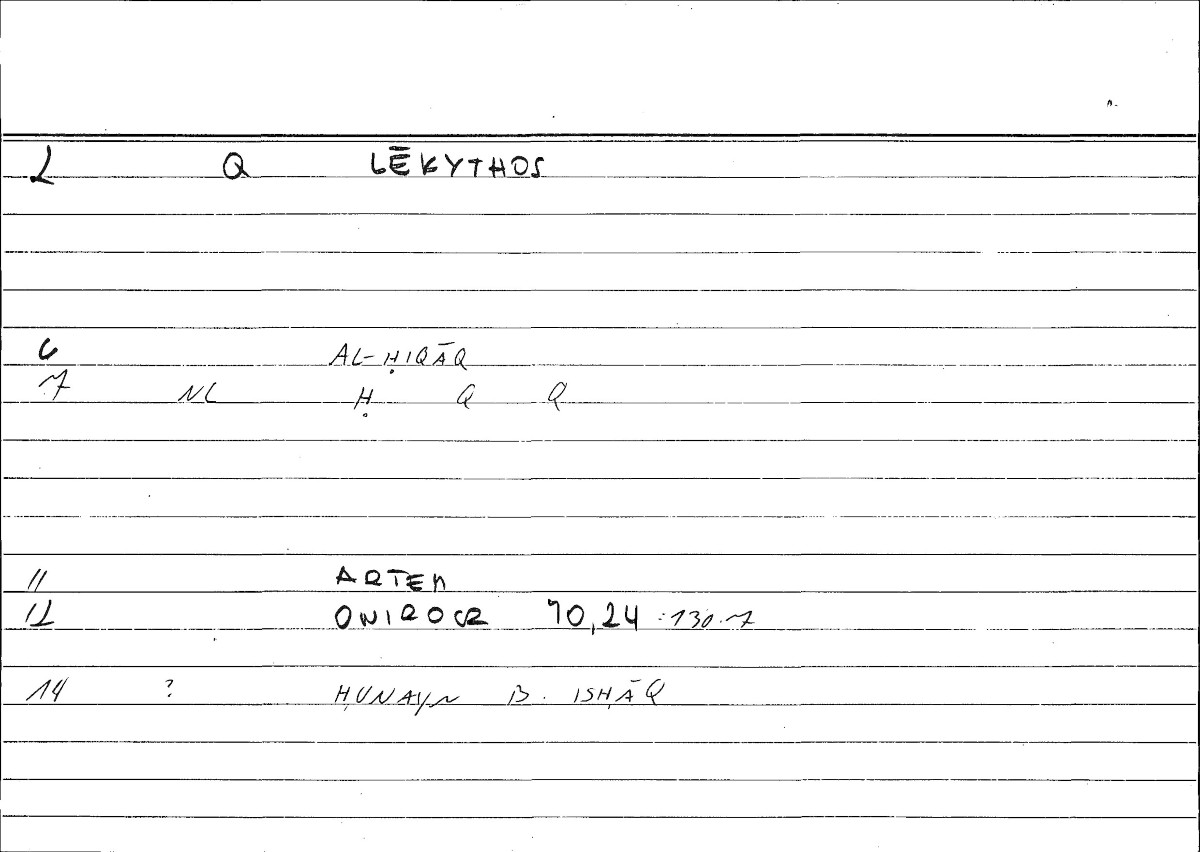 2 Q LĒKYTHOS
6 AL-ḤIQĀQ
7 NL Ḥ Q Q
11 ARTEM
12 ONIROCR 70,24 :130.7
14 ? ḤUNAYN B. ISḤĀQ